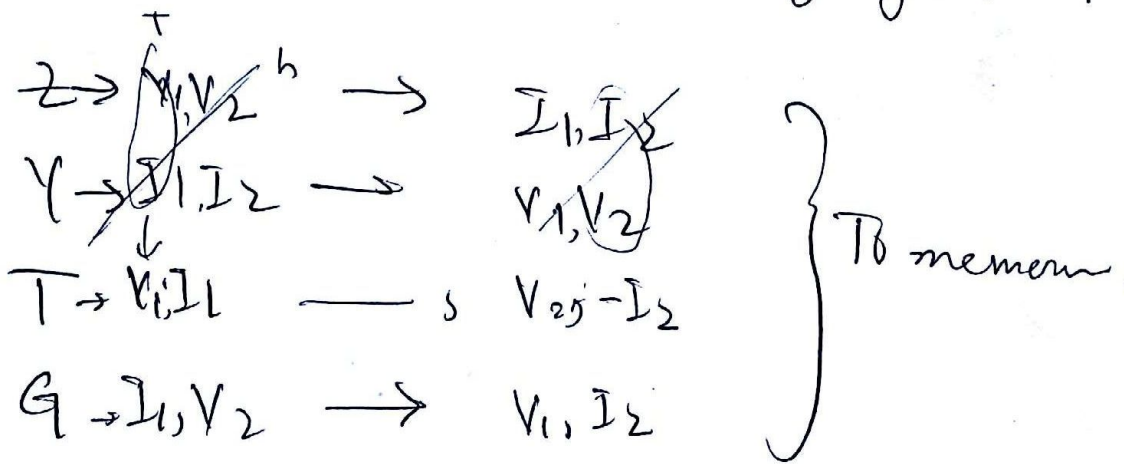 T
Z → V1, V2 h → I1, I2
Y → I1, I2 → V1, V2
↓
T → V1, I1 — s V2, -I2
G → I1, V2 → V1, I2
To